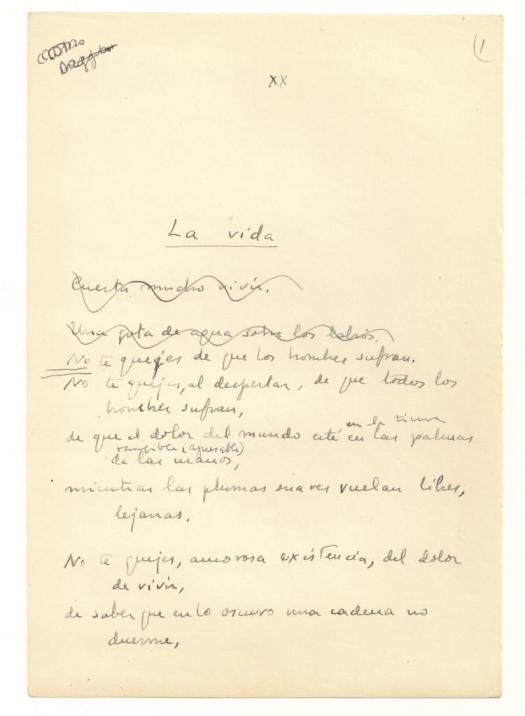 1
XX
La vida
Cuesta mucho vivir.
Una gota de agua sobre los labios.
No te quejes de que los hombres sufran.
No te quejes, al despertar, de que todos los
hombres sufran,
en la tierna
de que el dolor del mundo esté en las palmas
de las manos,
mientras las plumas suaves vuelan libres,
lejanas.
No te quejes, amorosa existencia, del dolor
de vivir,
de saber que en lo oscuro una cadena no
duerme,